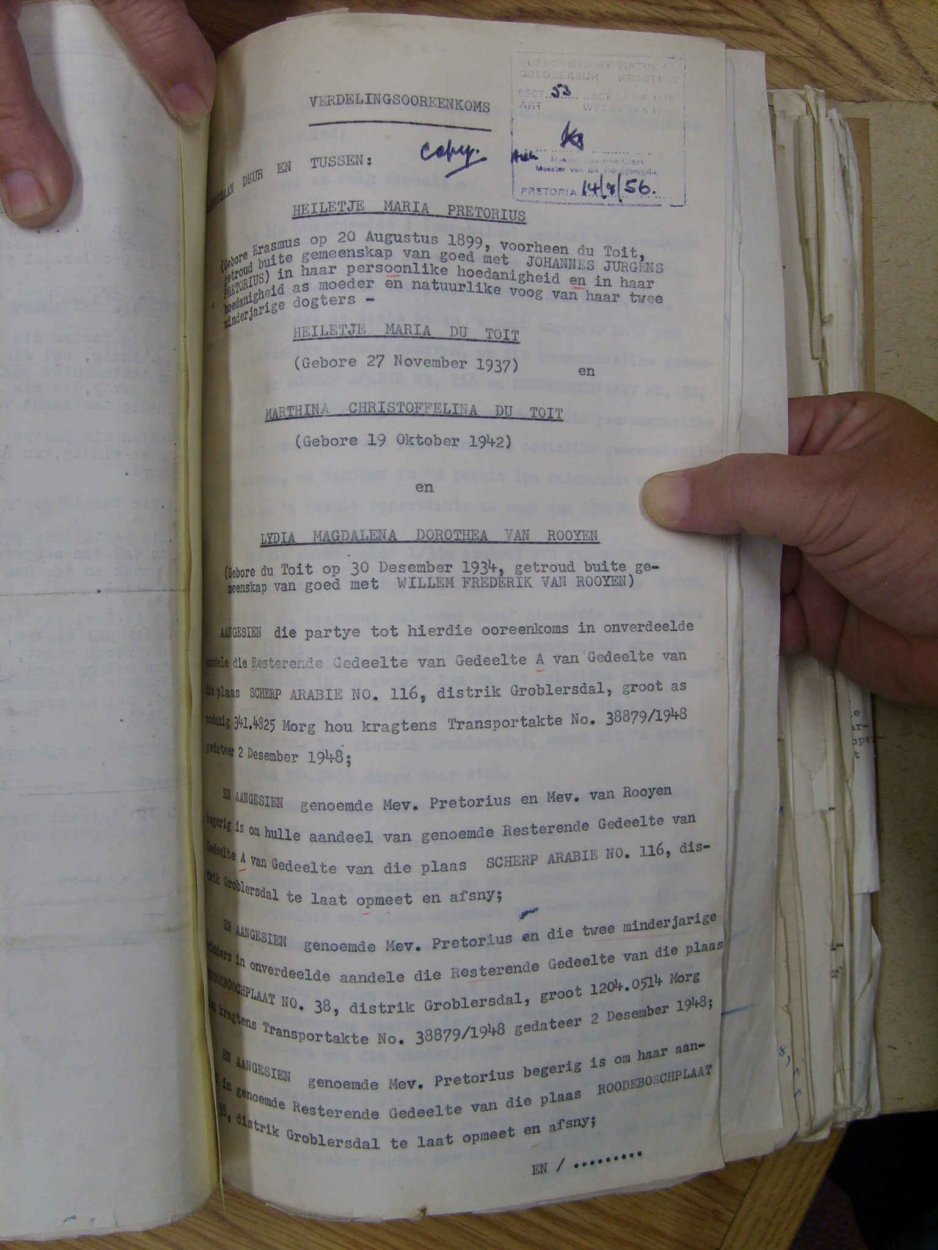 VERDELINGSOOREENKOMS
copy.
53
ART
PRETORIA 14/8/56.
DEUR EN TUSSEN:
HEILETJE MARIA PRETORIUS
(Gebore Erasmus op 20 Augustus 1899, voorheen du Toit,
getroud buite gemeenskap van goed met JOHANNES JURGENS
PRETORIUS) in haar persoonlike hoedanigheid en in haar
hoedanigheid as moeder en natuurlike voog van haar twee
minderjarige dogters -
HEILETJE MARIA DU TOIT
(Gebore 27 November 1937) en
MARTHINA CHRISTOFFELINA DU TOIT
(Gebore 19 Oktober 1942)
en
LYDIA MAGDALENA DOROTHEA VAN ROOYEN
(Gebore du Toit op 30 Desember 1934, getroud buite ge-
meenskap van goed met WILLEM FREDERIK VAN ROOYEN)
AANGESIEN die partye tot hierdie ooreenkoms in onverdeelde
aandele die Resterende Gedeelte van Gedeelte A van Gedeelte van
die plaas SCHERP ARABIE NO. 116, distrik Groblersdal, groot as
341.4825 Morg hou kragtens Transportakte No. 38879/1948
gedateer 2 Desember 1948;
EN AANGESIEN genoemde Mev. Pretorius en Mev. van Rooyen
begerig is om hulle aandeel van genoemde Resterende Gedeelte van
Gedeelte A van Gedeelte van die plaas SCHERP ARABIE NO. 116, dis-
trik Groblersdal te laat opmeet en afsny;
EN AANGESIEN genoemde Mev. Pretorius en die twee minderjarige
kinders in onverdeelde aandele die Resterende Gedeelte van die plaas
NO. 38, distrik Groblersdal, groot 1204.0514 Morg
kragtens Transportakte No. 38879/1948 gedateer 2 Desember 1948;
EN AANGESIEN genoemde Mev. Pretorius begerig is om haar aan-
in genoemde Resterende Gedeelte van die plaas ROODEBOSCHPLAAT
distrik Groblersdal te laat opmeet en afsny;
EN / .........